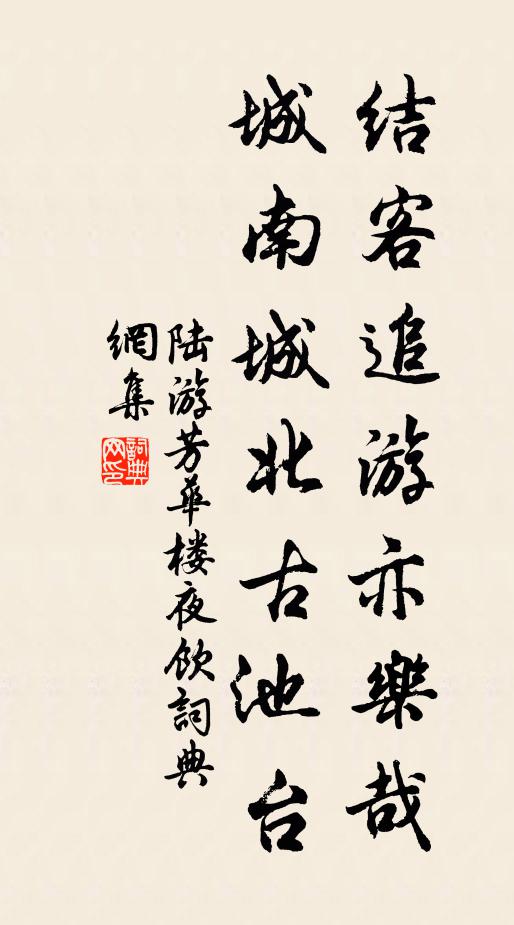 结客追游亦樂哉
城南城北古池台
陆游芳華楼夜飲詞典
網集
詞典网印